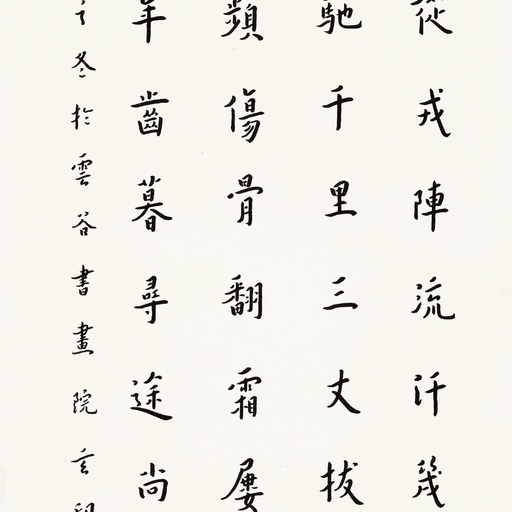 從戎陣流汗幾
馳千里三丈拔
頻傷骨翻霜屢
年齒暮尋途尚
冬於雲谷書畫院